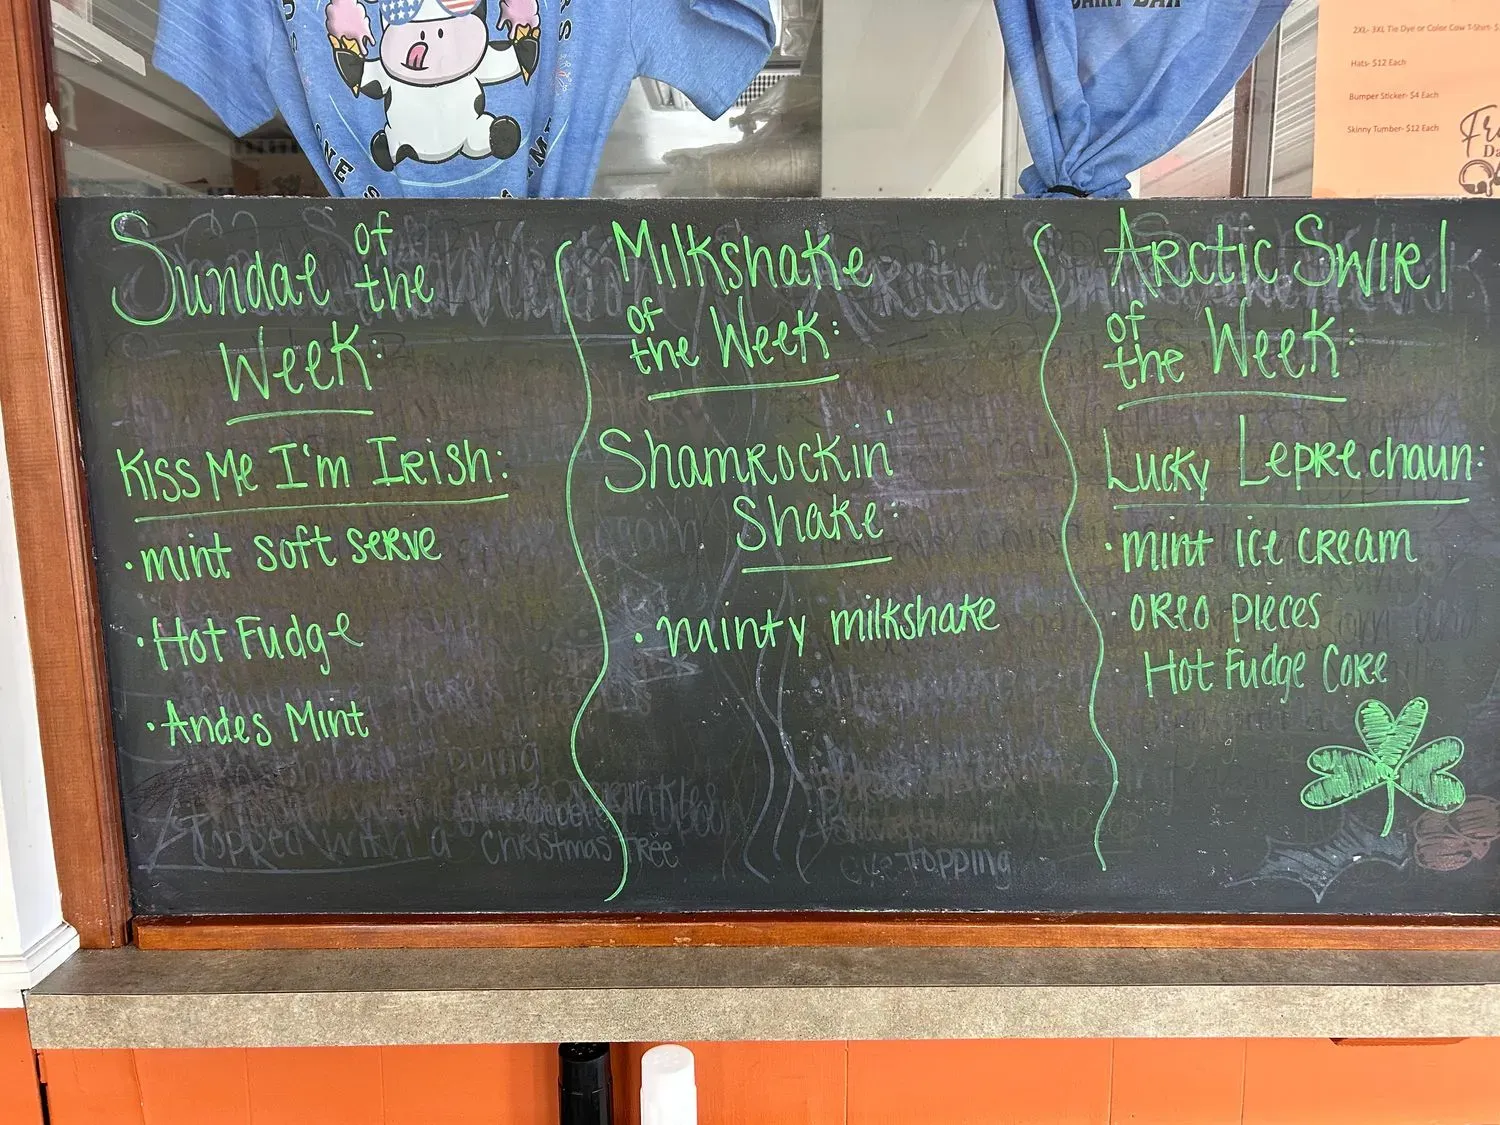 DAIRY BAR
2XL- 3XL Tie Dye or Color Cow T-Shirt- $
Hats- $12 Each
Bumper Sticker- $4 Each
Skinny Tumber- $12 Each
Sundae of the
Week:
Kiss Me I'm Irish:
·mint soft serve
·Hot Fudge
·Andes Mint
Milkshake
of the Week:
Shamrockin'
Shake:
·minty milkshake
Arctic Swirl
of the Week:
Lucky Leprechaun:
·mint ice cream
oreo pieces
Hot Fudge Core
Topped with a Christmas Tree
Topping